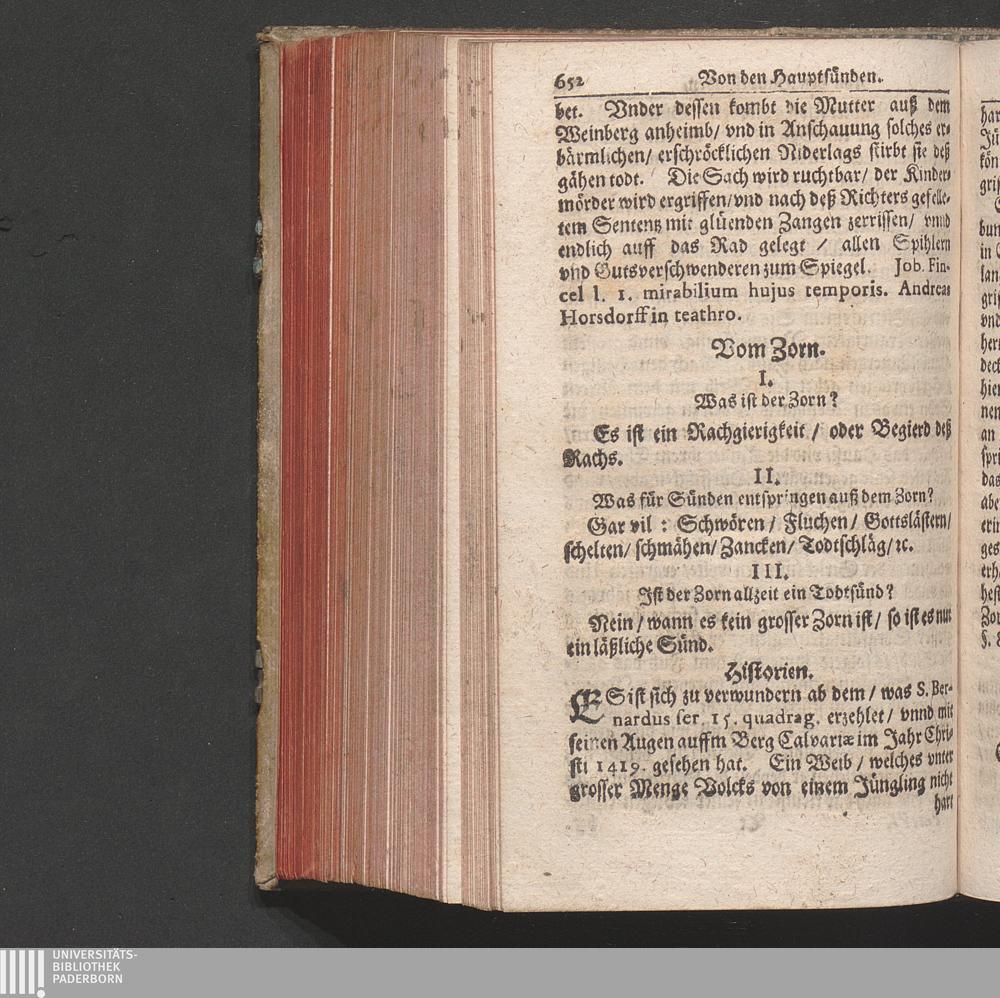 652 Von den Hauptsünden.
bet. Vnder dessen kombt die Mutter auß dem
Weinberg anheimb/ vnd in Anschauung solches er-
bärmlichen/ erschröcklichen Niderlags stirbt sie deß
gähen todt. Die Sach wird ruchtbar/ der Kinder-
mörder wird ergriffen/ vnd nach deß Richters gefelle-
tem Sententz mit glüenden Zangen zerrissen/ vnnd
endlich auff das Rad gelegt / allen Spihlern
vnd Gutsverschwenderen zum Spiegel. Job. Fin-
cel l. 1. mirabilium hujus temporis. Andreas
Horsdorff in teathro.
Vom Zorn.
I.
Was ist der Zorn?
Es ist ein Rachgierigkeit / oder Begierd deß
Rachs.
II.
Was für Sünden entspringen auß dem Zorn?
Gar vil : Schwören / Fluchen / Gottslästern/
schelten/ schmähen/ Zancken/ Todtschläg/ ꝛc.
III.
Ist der Zorn allzeit ein Todtsünd?
Nein / wann es kein grosser Zorn ist / so ist es nur
ein läßliche Sünd.
Historien.
ES ist sich zu verwundern ab dem / was S. Ber-
nardus ser. 15. quadrag. erzehlet / vnnd mit
seinen Augen auffm Berg Calvariæ im Jahr Chri-
sti 1419. gesehen hat. Ein Weib / welches vnter
grosser Menge Volcks von einem Jüngling nicht
hart
har
kön
grif
bun
in
lan
grif
vnd
her
deck
hier
nen
an
spri
das
abe
erin
ges
erh
hest
Zor
UNIVERSITÄTS-
BIBLIOTHEK
PADERBORN